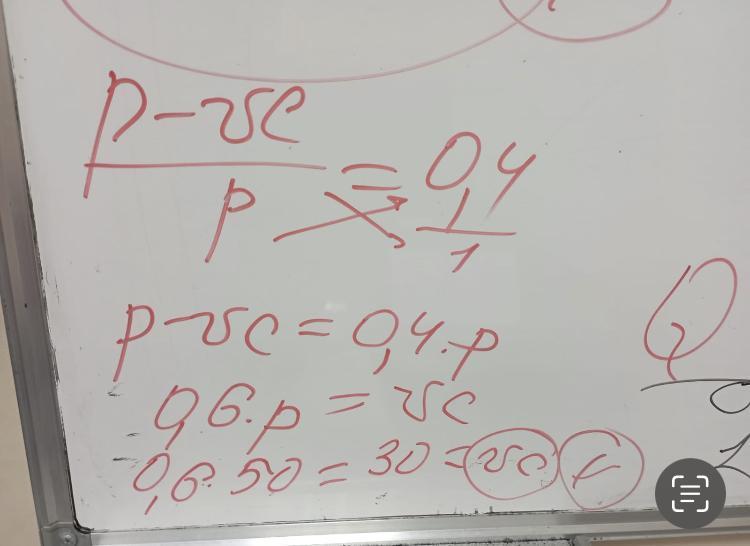 p-vc
p
= 0,4
1
p-vc = 0,4·p
0,6·p = vc
0,6·50 = 30 = vc
Q